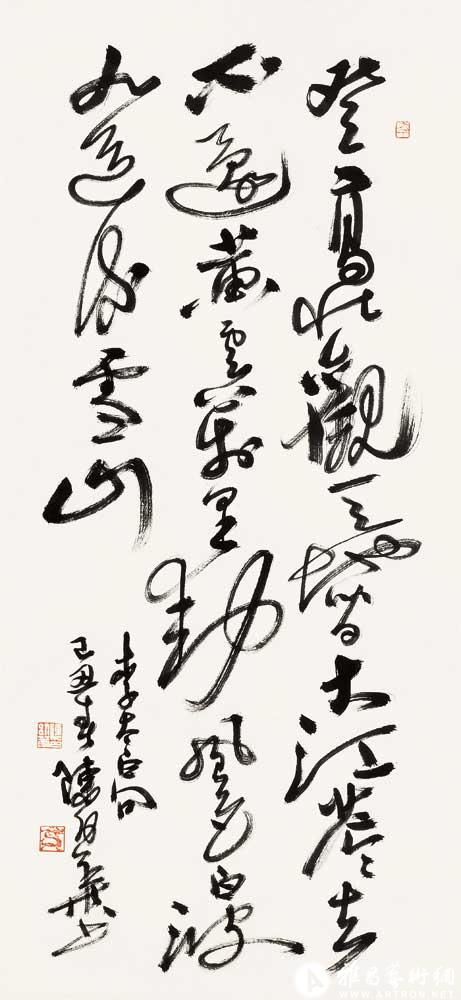 登高壯觀天地間大江茫茫去
不還黃雲萬里動風色白波
九道流雪山
李太白句
己丑春陳
雅昌藝術網
WWW.ARTRON.NET